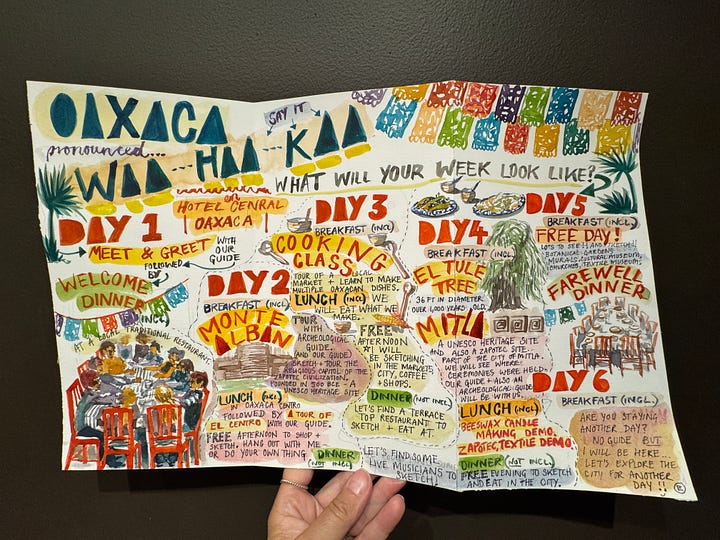 OAXACA
pronounced...
SAY IT
WAA...HAA...KAA
WHAT WILL YOUR WEEK LOOK LIKE?
DAY 1
HOTEL CENRAL
OAXACA
MEET & GREET
WITH
OUR
GUIDE
FOLLOWED
BY
WELCOME
DINNER
(INCL.)
AT A LOCAL TRADITIONAL RESTAURANT.
DAY 2
BREAKFAST (INCL)
MONTE
ALBAN
TOUR
WITH
ARCHEOLOGICAL
GUIDE.
(AND OUR GUIDE)
SKETCH + TOUR THE
RELIGIOUS CAPITOL OF THE
ZAPOTEC CIVILIZATION,
FOUNDED IN 500 BCE - A
UNESCO HERITAGE SITE
LUNCH (INCL)
IN OAXACA CENTRO
FOLLOWED BY A TOUR OF
EL CENTRO WITH OUR GUIDE.
FREE AFTERNOON TO SHOP +
SKETCH, HANG OUT WITH ME
OR DO YOUR OWN THING
DINNER
(NOT INCL)
LET'S FIND SOME
LIVE MUSICIANS TO
SKETCH!
DAY 3
BREAKFAST (INCL)
COOKING
CLASS
TOUR OF A LOCAL
MARKET + LEARN TO MAKE
MULTIPLE OAXACAN DISHES.
LUNCH (INCL) WE
WILL EAT WHAT WE
MAKE.
FREE
AFTERNOON
I WILL
BE SKETCHING
IN THE MARKETS,
CITY, COFFEE
+ SHOPS.
DINNER (NOT INCL)
LET'S FIND A TERRACE
TOP RESTAURANT TO
SKETCH + EAT AT.
DAY 4
BREAKFAST (INCL)
EL TULE
TREE
36 FT IN DIAMETER
OVER 1,000 YEARS OLD.
MITLA
A UNESCO HERITAGE SITE
AND ALSO A ZAPOTEC SITE..
PART OF THE CITY OF MITLA.
WE WILL SEE WHERE
CEREMONIES WERE HELD.
OUR GUIDE + ALSO AN
ARCHEOLOGICAL GUIDE
WILL BE WITH US.
LUNCH (INCL)
BEESWAX CANDLE
MAKING DEMO.
ZAPOTEC TEXTILE DEMO.
DINNER (NOT INCL.)
FREE EVENING TO SKETCH
AND EAT IN THE CITY.
DAY 5
BREAKFAST (INCL.)
FREE DAY!
LOTS TO SEE AND SKETCH!
BOTANICAL GARDENS
MURALS, CULTURAL MUSEUM,
CHURCHES, TEXTILE MUSEUM
FAREWELL
DINNER
(INCL)
DAY 6
BREAKFAST (INCL.)
ARE YOU STAYING
ANOTHER DAY?
NO GUIDE BUT
I WILL BE HERE...
LET'S EXPLORE THE
CITY FOR ANOTHER
DAY!!